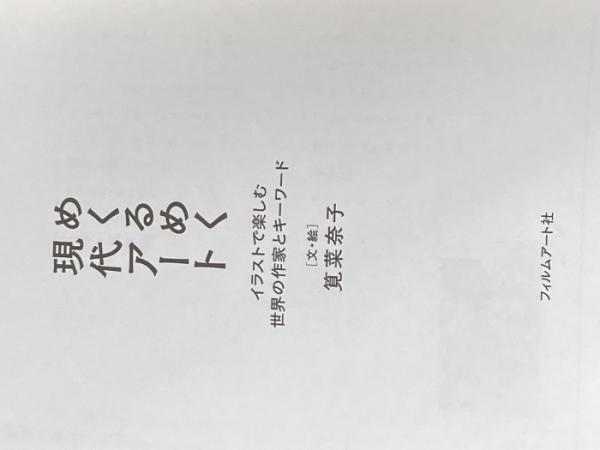 めくるめく
現代アート
イラストで楽しむ
世界の作家とキーワード
[文・絵]
筧菜奈子
フィルムアート社